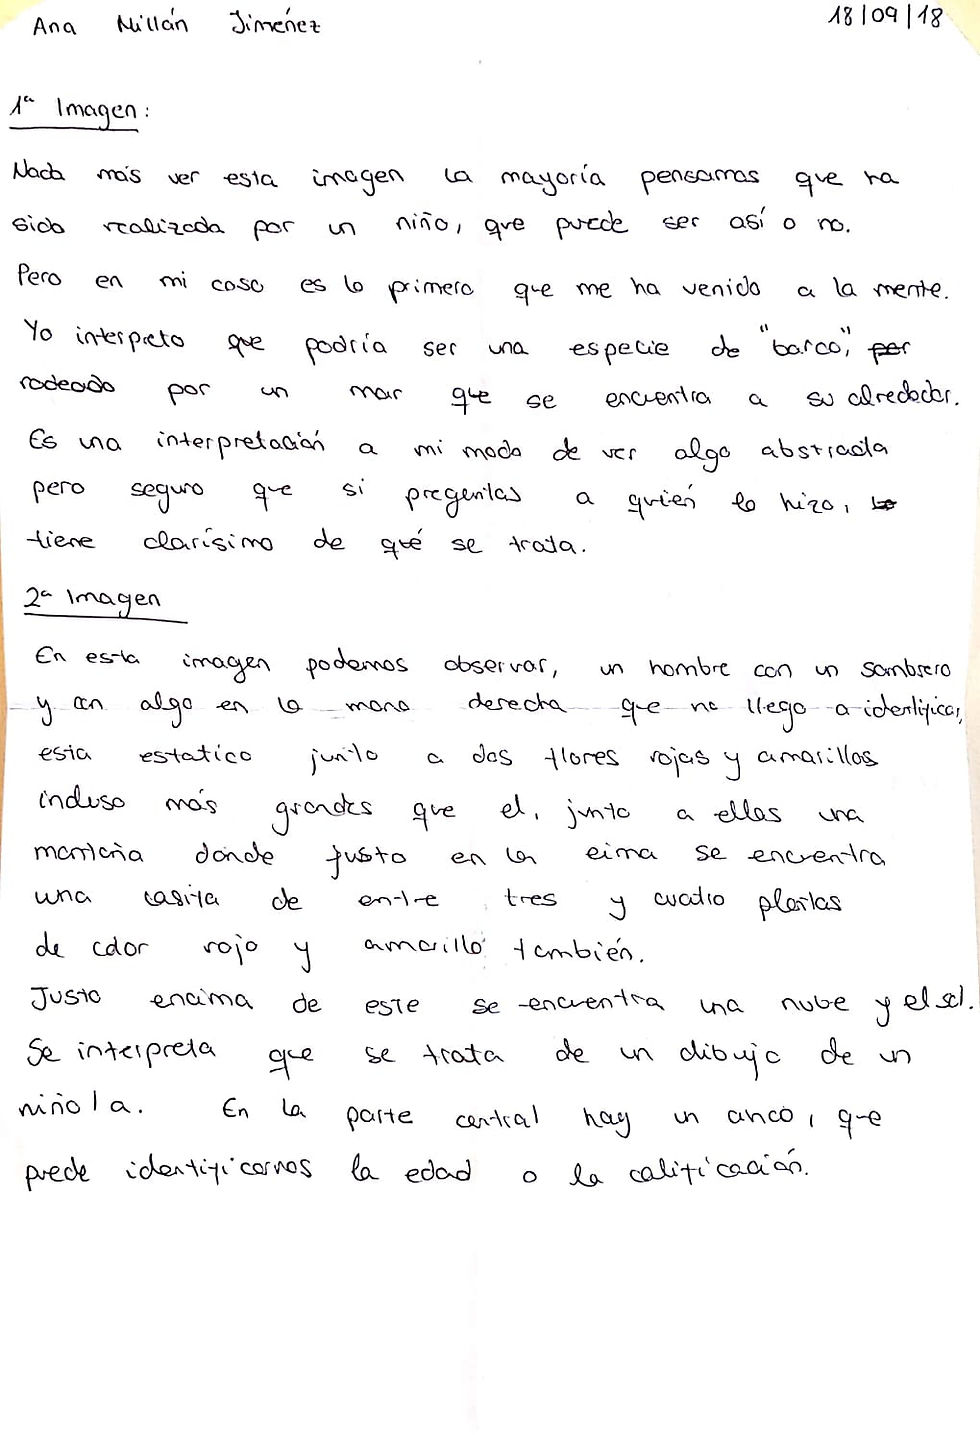 Ana Millán Jimeńez
18/09/18
1ª Imagen:
Nada más ver esta imagen la mayoría pensamos que ha
sido realizada por un niño, que puede ser así o no.
Pero en mi caso es lo primero que me ha venido a la mente.
Yo interpreto que podría ser una especie de "barco", por
rodeado por un mar que se encuentra a su alrededor.
Es una interpretación a mi modo de ver algo abstracta
pero seguro que si preguntas a quién lo hizo, lo
tiene clarísimo de qué se trata.
2ª Imagen
En esta imagen podemos observar, un hombre con un sombrero
y con algo en la mano derecha que no llego a identificar,
esta estatico junto a dos flores rojas y amarillas
incluso más grandes que el, junto a ellas una
montaña donde justo en la cima se encuentra
una casita de entre tres y cuatro plantas
de color rojo y amarillo también.
Justo encima de este se encuentra una nube y el sol.
Se interpreta que se trata de un dibujo de un
niño/a. En la parte central hay un cinco, que
puede identificarnos la edad o la calificación.